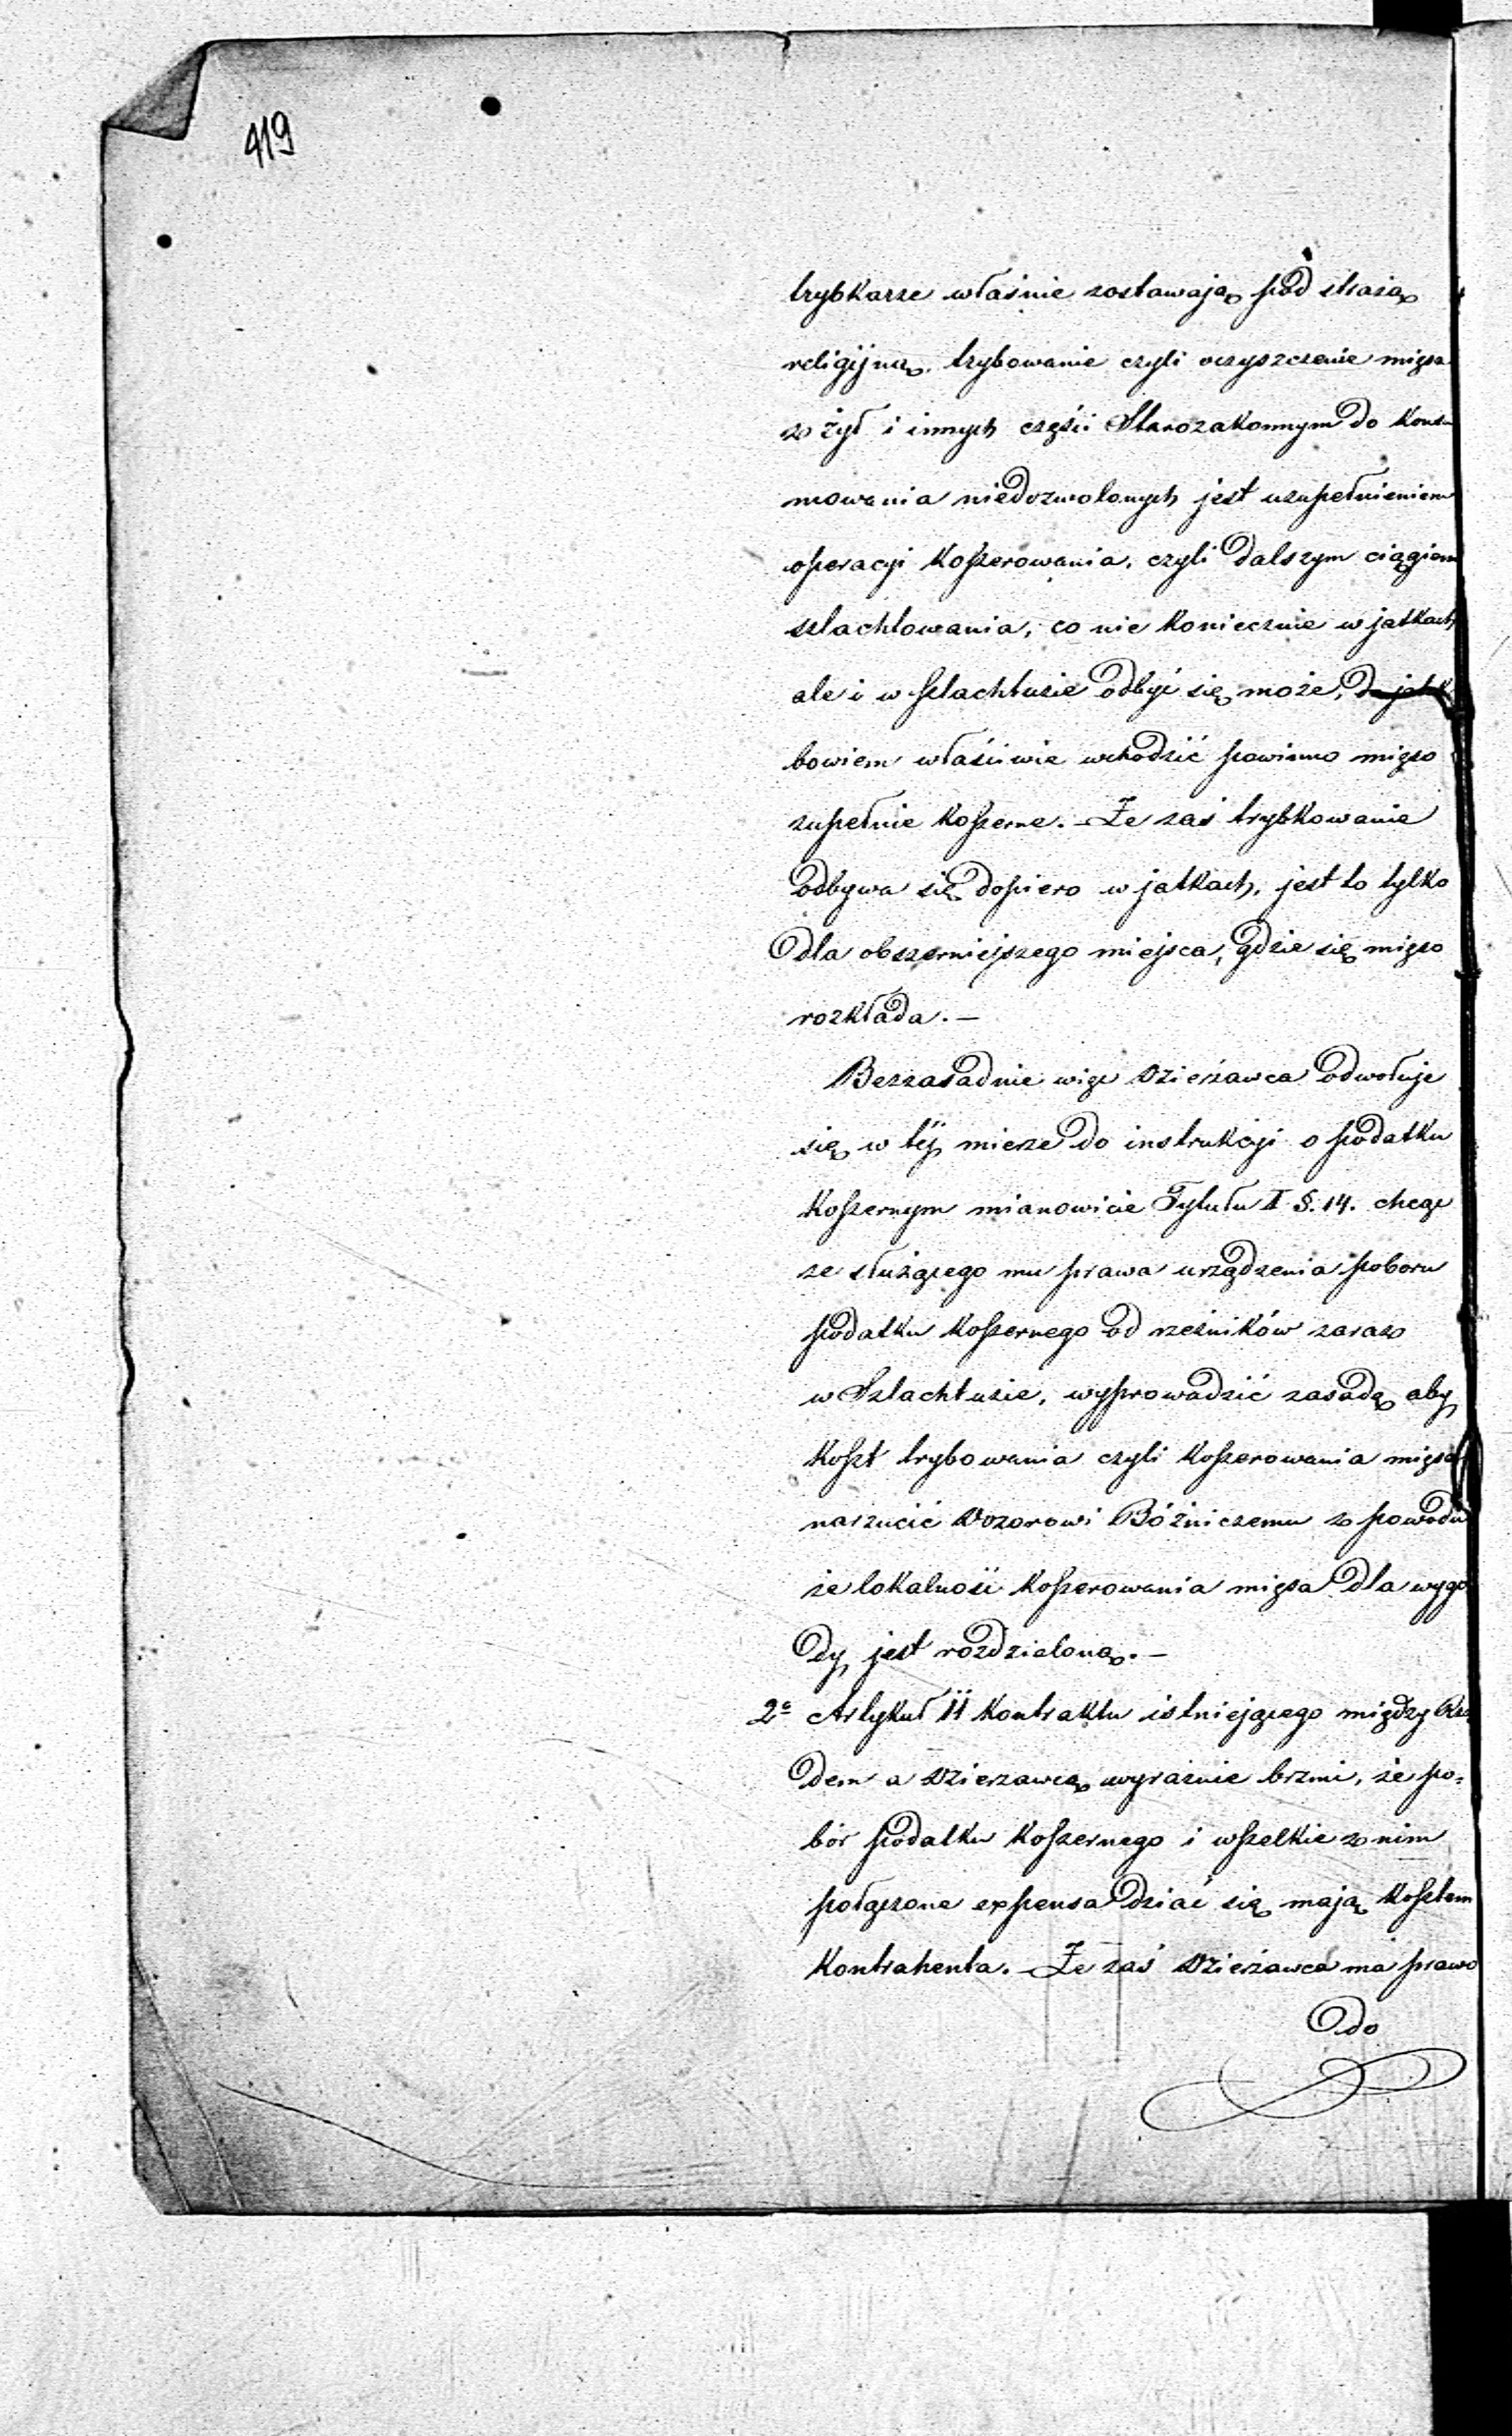 419
trybkarze właśnie zostawają pod strażą
religijną, trybowanie czyli oczyszczenie mięsa
z żył i innych części Starozakonnym do konsu
mowania niedozwolonych jest uzupełnieniem
operacyi koszerowania, czyli dalszym ciągiem
szlachtowania, co nie koniecznie w jatkach
ale i w szlachtuzie odbyć się może, do jatk
bowiem właściwie wchodzić powinno mięso
zupełnie koszerne. – Że zaś trybkowanie
odbywa się dopiero w jatkach, jest to tylko
dla obszerniejszego miejsca, gdzie się mięso
rozkłada. –
Bezzasadnie więc Dzierżawca odwołuje
się w téj mierze do instrukcyi o podatku
koszernym mianowicie Tytułu I §. 14. chcąc
ze służącego mu prawa urządzenia poboru
podatku koszernego od rzeźników zaraz
w Szlachtuzie, wyprowadzić zasadę aby
koszt trybowania czyli koszerowania mięsa
narzucić Dozorowi Bóżniczemu z powodu
że lokalność koszerowania mięsa dla wygo
dy jest rozdzieloną. –
2e Artykuł 11 kontraktu istniejącego między Rzą
dem a Dzierzawcą wyraźnie brzmi, że po=
bór podatku koszernego i wszelkie z nim
połączone expensa dziać się mają kosztem
kontrahenta. – Że zaś Dzierżawca ma prawo
do